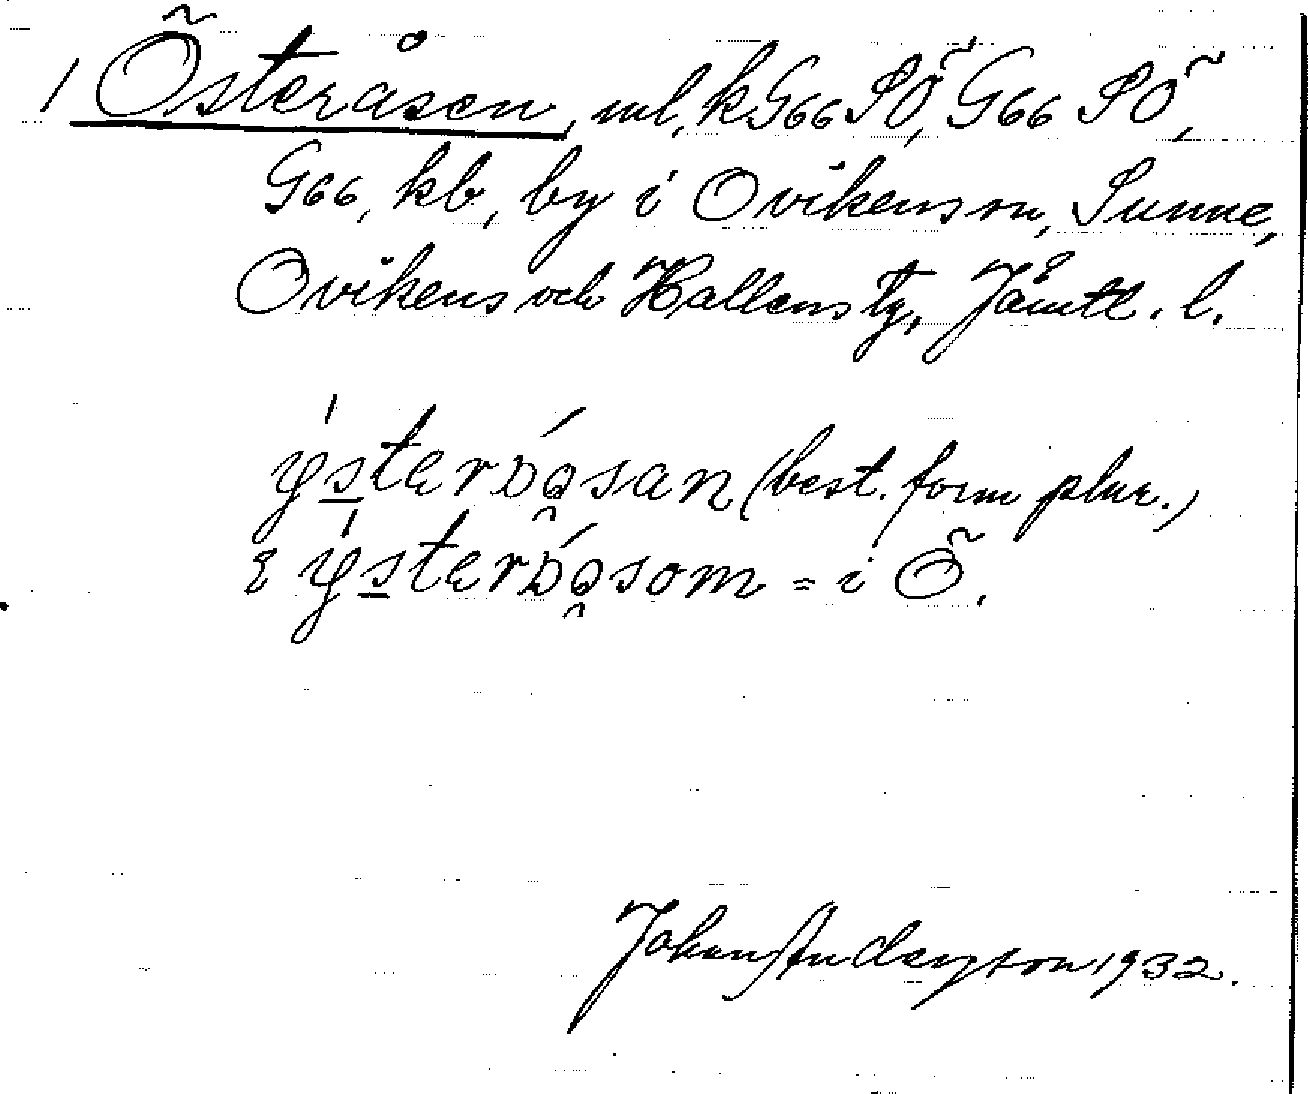 1 Österåsen, ml, k G66 SÖ, G66 SÖ,
G66, kb, by i Ovikens sn, Sunne,
Ovikens och Hallens tg, Jämtl. l.
(best. form plur.)
= i Ö.
Johan Anderson 1932.